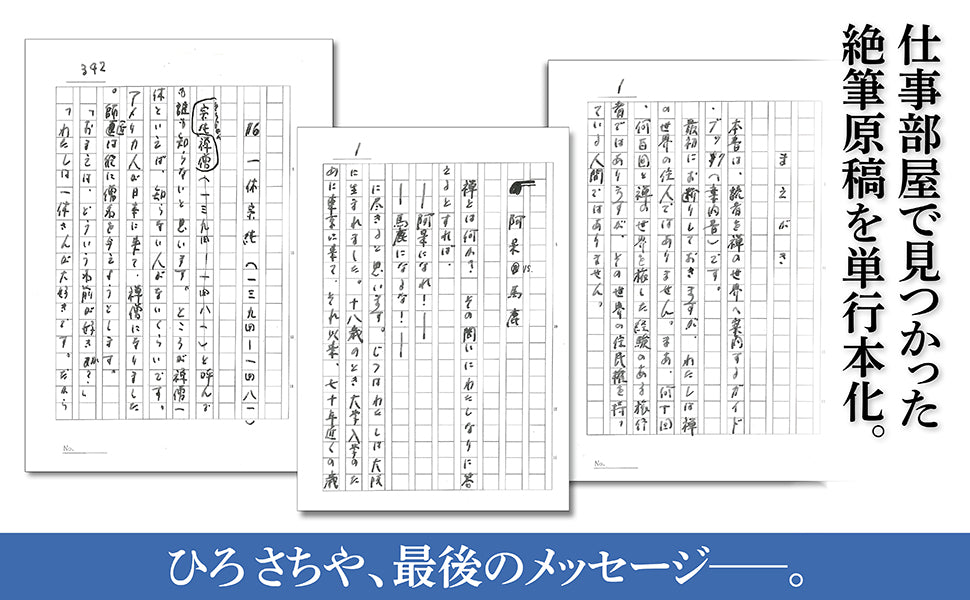 仕事部屋で見つかった
絶筆原稿を単行本化。
1
まえがき
本書は、読者を禅の世界へ案内するガイド
・ブック(案内書)です。
最初にお断りしておきますが、わたしは禅
の世界の住人ではありません。まあ、何十回
、何百回と禅の世界を旅した経験のある旅行
者ではありますが、その世界の住民権を持っ
ている人間ではありません。
1
阿呆 vs. 馬鹿
禅とは何か? その問いにわたしなりに答
えるとすれば、
——阿呆になれ!——
——馬鹿になるな!——
に尽きると思います。じつはわたしは大阪
に生まれました。十八歳のとき大学入学のた
めに東京に来て、それ以来、七十年近くの歳
342
16 一休宗純(一三九四—一四八一)
宗純禅僧(一三九四—一四八一)と呼んで
も誰も知らないと思います。ところが禅僧一
休といえば、知らない人がないくらいです。
アメリカ人が日本に来て、禅僧になりました
。師匠は彼に僧名を与えようとします。
「おまえは、どういう名前が好きか?」
「わたしは一休さんが大好きです。だから
No.
No.
ひろさちや、最後のメッセージ——。